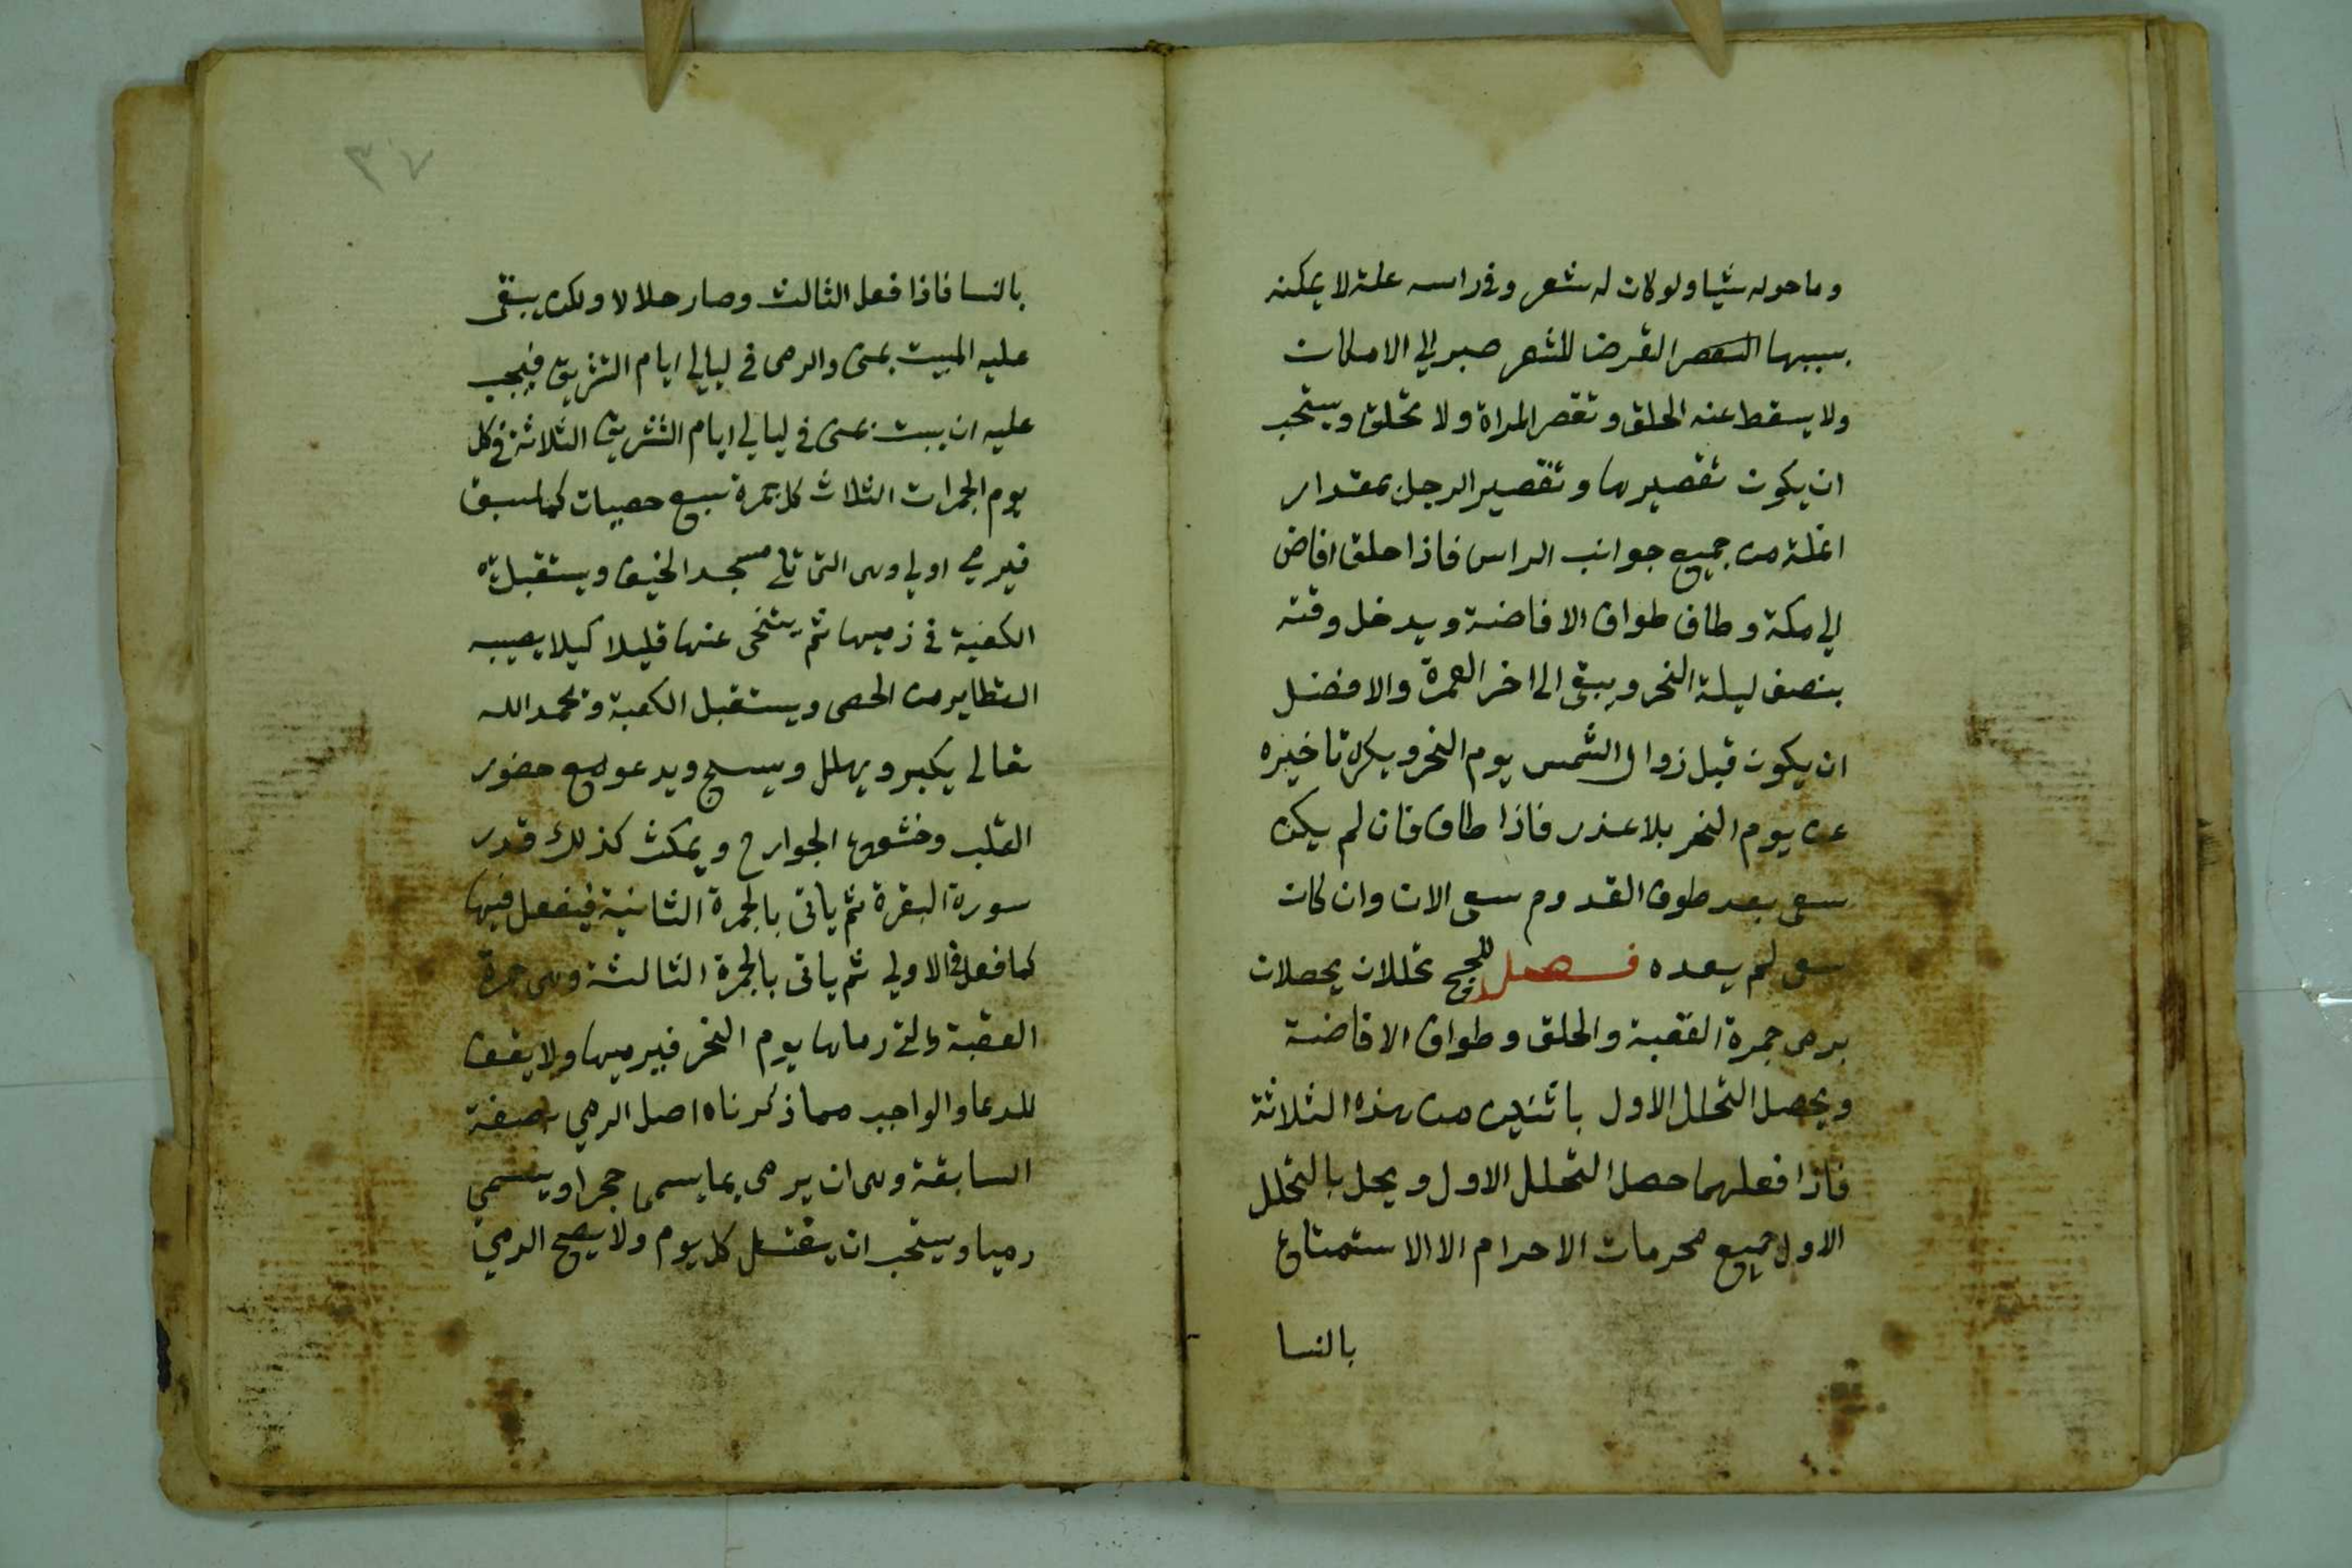 وما حوله شيا ولو كان له شعر وفي راسه علة لا يمكنه
بسببها القرض للشعر صبر الي الامكان
ولا يسقط عنه الحلق وتقصر المراة ولا تحلق ويستحب
ان يكون تقصيرها وتقصير الرجل بمقدار
انملة من جميع جوانب الراس فاذا حلق افاض
الي مكة وطاف طواف الافاضة ويدخل وقته
بنصف ليلة النحر ويبقى الى اخر العمرة والافضل
ان يكون قبل زوال الشمس يوم النحر ويكره تاخيره
عن يوم النحر بلا عذر فاذا طاف فان لم يكن
سعى بعد طوف القدوم سعى الان وان كان
سعى لم يعده فصل للحج تحللان يحصلان
برمى جمرة العقبة والحلق وطواف الافاضة
ويحصل التحلل الاول باثنين من هذه الثلاثة
فاذا فعلهما حصل التحلل الاول ويحل بالتحلل
الاول جميع محرمات الاحرام الا الاستمتاع
بالنسا
٣٧
بالنسا فاذا فعل الثالث وصار حلالا ولكن يبقى
عليه المبيت بمنى والرمى في ليالي ايام التشريق فيجب
عليه ان يبيت بمنى في ليالي ايام التشريق الثلاثة في كل
يوم الجمرات الثلاث كل جمرة سبع حصيات كما سبق
فيرمي اولي وهى التى تلي مسجد الخيف ويستقبل
الكعبة في رميها ثم يتنحى عنها قليلا كيلا يصيبه
المتطاير من الحصى ويستقبل الكعبة ويحمد الله
تعالى يكبر ويهلل ويسبح ويدعو مع حضور
القلب وخشوع الجوارح ويمكث كذلك قدر
سورة البقرة ثم ياتى بالجمرة الثانية فيفعل فيها
كما فعل في الاولي ثم ياتى بالجمرة الثالثة وهى جمرة
العقبة التي رماها يوم النحر فيرميها ولا يقف
للدعا والواجب مما ذكرناه اصل الرمي بصفة
السابقة وهى ان يرمى بما يسمى حجرا ويسمى
رميا ويستحب ان يغتسل كل يوم ولا يصح الرمي